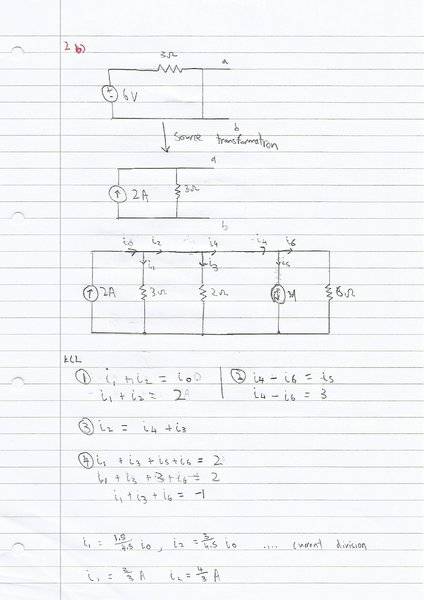 2 b)
3Ω
a
6V
b
Source transformation
a
2A
3Ω
b
i₀ i₂ i₄ i₄ i₆
i₁ i₃ i₅
2A 3Ω 2Ω 3A 6Ω
KCL
① i₁ + i₂ = i₀
i₁ + i₂ = 2A
② i₄ - i₆ = i₅
i₄ - i₆ = 3
③ i₂ = i₄ + i₃
④ i₁ + i₃ + i₅ + i₆ = 2
i₁ + i₃ + 3 + i₆ = 2
i₁ + i₃ + i₆ = -1
i₁ = 1.5/4.5 i₀, i₂ = 3/4.5 i₀ .... current division
i₁ = 2/3 A i₂ = 4/3 A